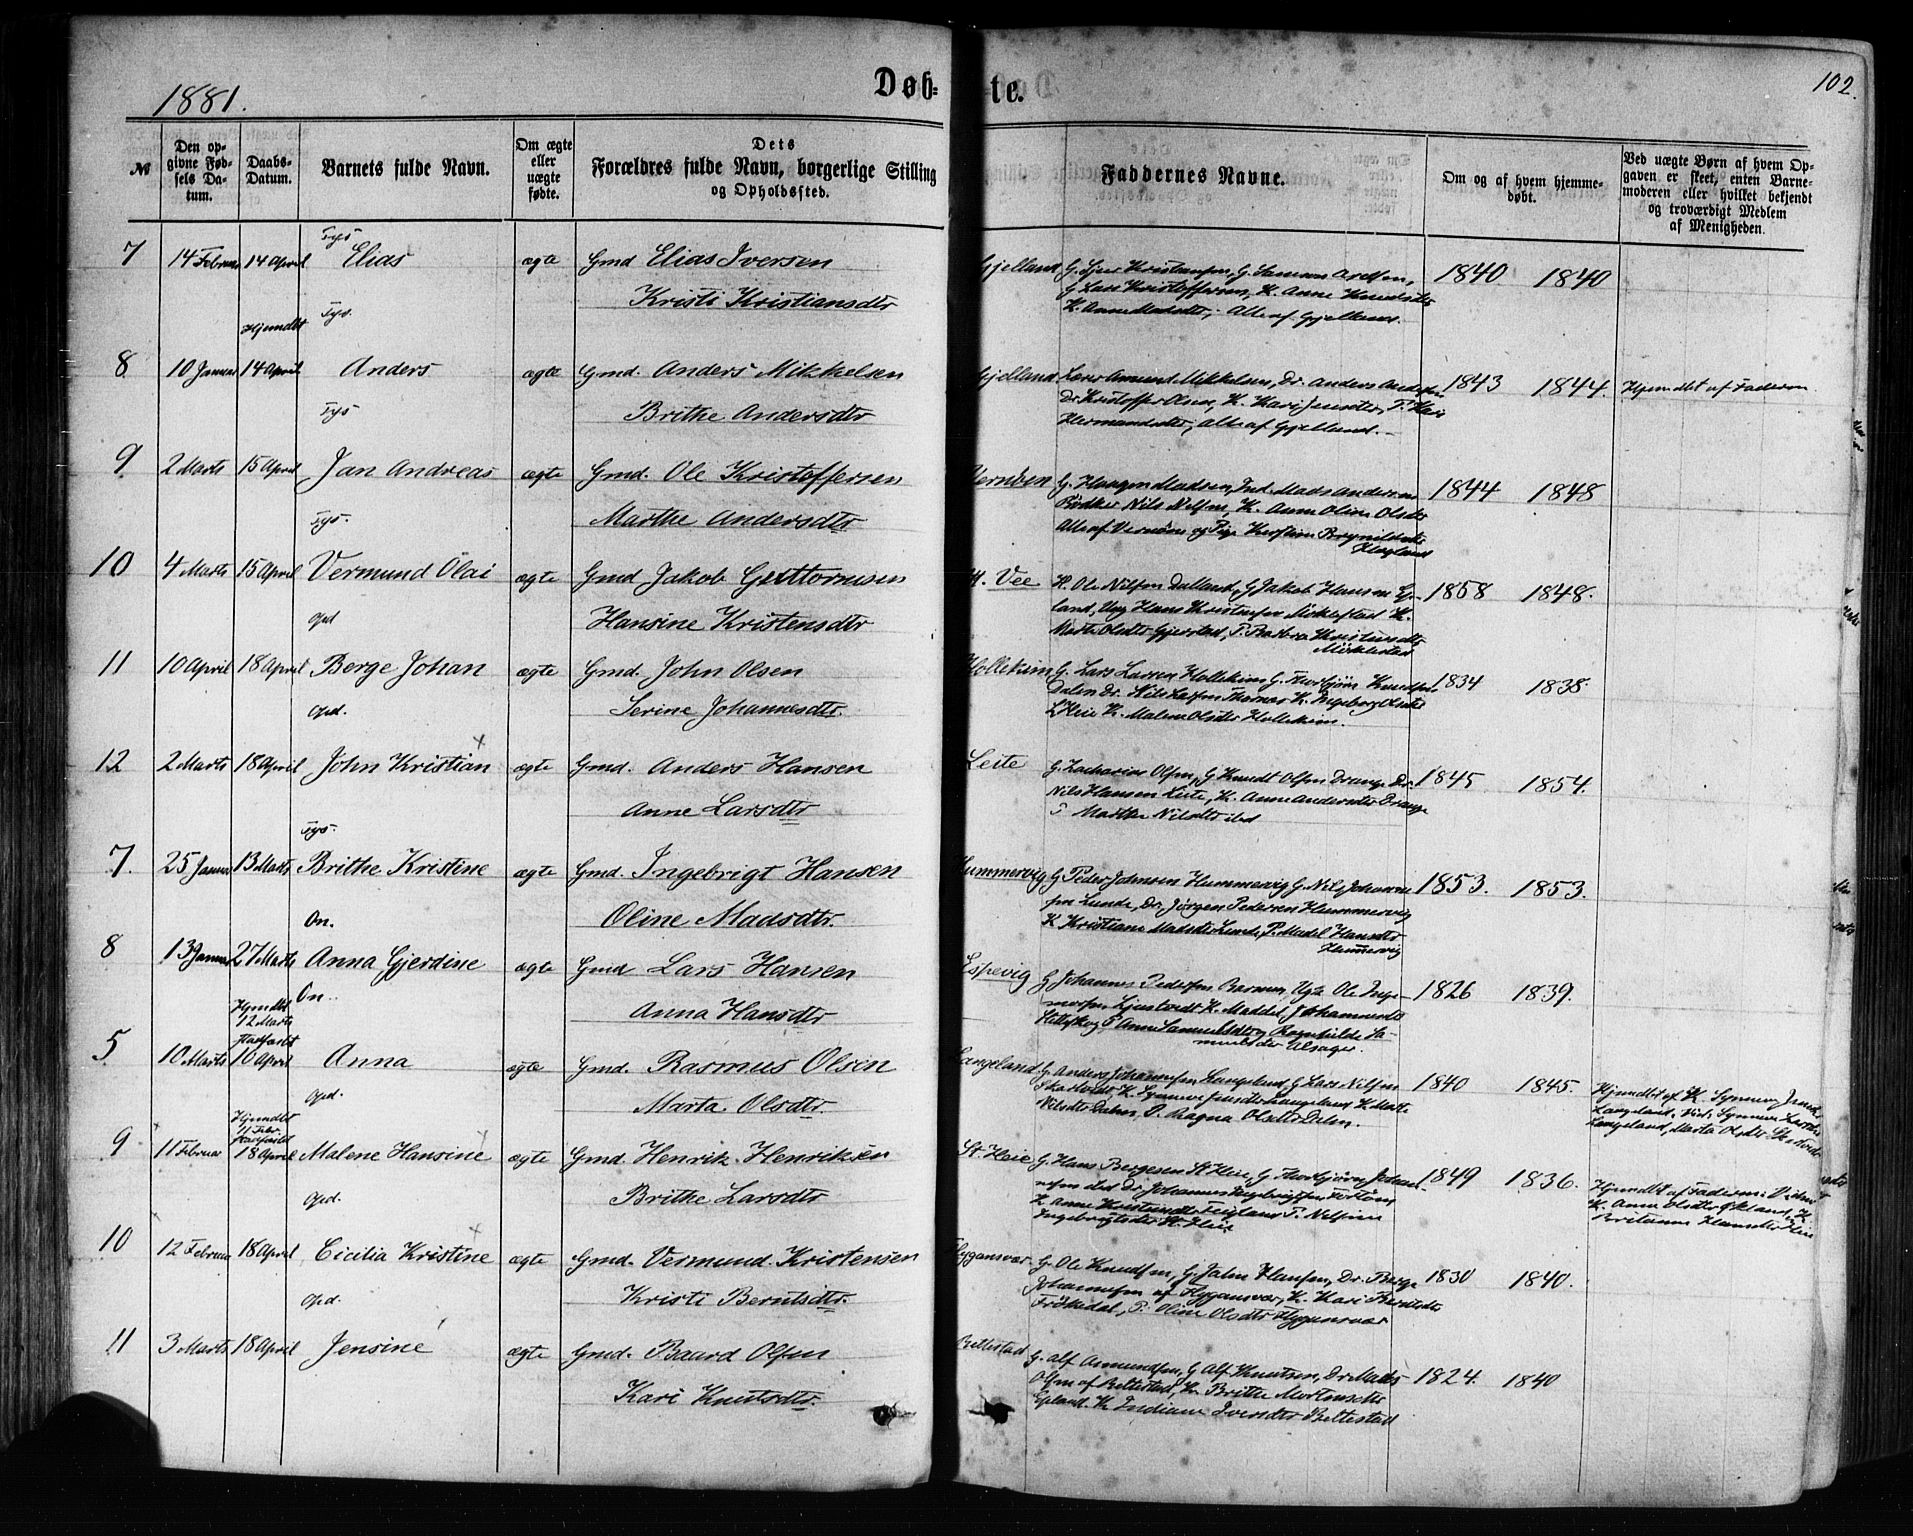 1881.
Døb-
te.
102.
№
Den op-
givne Fød-
sels Da-
tum.
Daabs-
Datum.
Barnets fulde Navn.
Om ægte
eller
uægte
fødte.
Dets
Forældres fulde Navn, borgerlige Stilling
og Opholdssted.
Faddernes Navne.
Om og af hvem hjemme-
døbt.
Ved uægte Børn af hvem Op-
gaven er skeet, enten Barne-
moderen eller hvilket bekjendt
og troværdigt Medlem
af Menigheden.
Tys
7 14 Februar 14 April Elias ægte Gmd Elias Iversen Gjelland
Kristi Kristiansdtr
G. Lars Kristoffersen, K. Anne Knudsdtr
K. Anne Madsdtr, Alle af Gjelland.
1840. 1840
Tys.
Hjemdbt
8 10 Januar 14 April Anders ægte Gmd. Anders Mikkelsen Gjelland
Brithe Andersdtr
Amund Mikkelsen, Dr. Anders Andersen
Dr Kristoffer Olsen, K. Kari Jensdtr, P.
Hermansdtr, Alle af Gjelland.
1843 1844. Hjemdbt af Faderen
Tys
9 2 Marts 15 April Jan Andreas ægte Gmd. Ole Kristoffersen
Marthe Andersdtr
G. Haagen Madsen, Ind. Mads Andersen
Nils Nilsen, K. Anne Oline Olsdtr
Alle af og Pige Brynildsdtr
Hogland
1844 1848
Tys.
10 4 Marts 15 April Vermund Olai ægte Gmd Jakob Guttormsen Vee
Hansine Kristensdtr
Ole Nilsen Dalland, G Jakob Hansen
land, Ung Hans Kristensen Møklestad K.
Olsdtr Gjerstad, P. Barbra Kristensdtr
Møklestad
1858 1848.
Opd
11 10 April 18 April Børge Johan ægte Gmd. John Olsen Hollekim
Serine Johannesdtr.
G. Lars Larsen Hollekim G. Thorbjørn Knudsen
Dalen Dr. Nils Larsen K. Ingeborg Olsdtr
L Heie K. Malene Olsdtr Hollekim.
1834 1838.
Opd.
12 2 Marts 18 April John Kristian ægte Gmd. Anders Hansen Leite
Anne Larsdtr
G. Zacharias Olsen, G Knudt Olsen Drange Dr.
Nils Hansen Leite, K. Anne Andersdtr Drange
Marthe Nilsdtr ibd
1845 1854.
Tys.
7. 25 Januar 13 Marts Brithe Kristine ægte Gmd. Ingebrigt Hansen Hummervig
Oline Madsdtr.
G Peder Johnsen Hummervig G. Nils Johanne-
sen Lunde, Dr. Jørgen Pedersen Hummervig
K Kristiane Madsdtr Lunde, P. Madel Hansdtr
Hummervig
1853. 1853.
On.
8 13 Januar 27 Marts Anna Gjerdine ægte Gmd Lars Hansen Espevig
Anna Hansdtr
G Johannes Pedersen Ole Inge-
K. Maddel Johannesdtr
P Anne Samuelsdtr og Ragnhilde Sa-
muelsdtr Alsager.
1826 1839.
On..
Hjemdbt
12 Marts
Stadfæstet
5 10 Marts 10 April Anna ægte Gmd. Rasmus Olsen Langeland
Marta Olsdtr.
G. Anders Johannesen Langeland G Lars Nilsen
K. Synneve Jensdtr Langeland K. Marte
Nilsdtr Dalen, P. Ragna Olsdtr Dalen.
1840 1845. Hjemdbt af K. Synneve Jensdtr
Langeland, Vid. Synneve Larsdtr
Langeland, Marta Olsdtr
Opd.
Hjemdbt
11 Febr.
Stadfæstet
9 11 Februar 18 April Malene Hansine ægte Gmd. Henrik Henriksen St. Heie
Brithe Larsdtr
G. Hans Børgesen St Heie, G. Thorbjørn Johan-
nesen ibd Dr. Johannes Ingebrigtsen
K. Anne Kristensdtr P. Nilsine
Ingebrigtsdtr St. Heie
1849 1836. Hjemdbt af Faderen: Vidner
K. Anne Olsdtr K.
Hansdtr Heie
Opd.
10 12 Februar 18 April Cicilia Kristine ægte Gmd. Vermund Kristensen Flygansvær
Kristi Berntsdtr.
G. Ole Knudsen, G. John Hansen, Dr. Børge
Johannesen af Flygansvær, K. Kari Berntsdtr
Frøkedal, P. Oline Olsdtr Flygansvær
1830 1840.
Opd.
11 3 Marts 18 April Jensine ægte Gmd. Baard Olsen Bettestad
Kari Knutsdtr.
G. Alf Amundsen, G Alf Knutsen, Dr. Mads
Olsen af Bettestad, K. Brithe Mortensdtr
Epland K Indiane Iversdtr Bettestad
1824. 1840